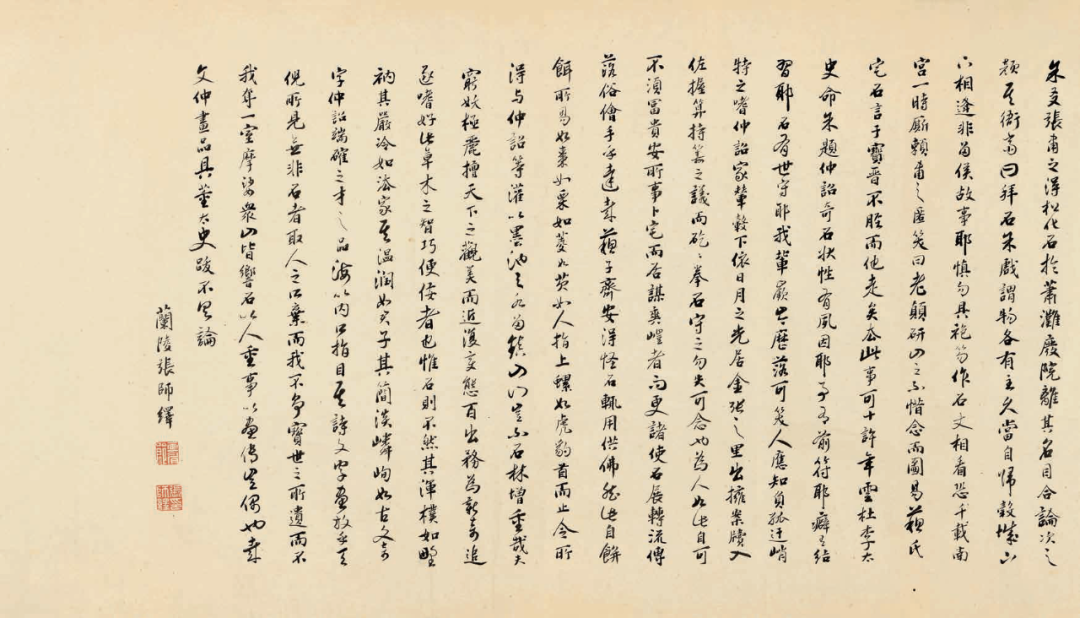 朱友張甫之得松化石於蕭灘廢院離其名目合論次之
顏其衙齋曰拜石朱戲謂物各有主久當自歸穀城下
一相逢非留侯故事耶慎勿具袍笏作石丈相看恐千載南
宮一時廝賴甫之匿笑曰老顛研山之不惜念而圖易蘇氏
宅石言于寶晉不脛而他走矣蓋此事可十許年雲杜李太
史命朱題仲詔奇石狀性有夙因耶事有前符耶癖之結
習耶石有世守耶我輩嶔崎歷落可笑人應知負孤迂峭
特之嗜仲詔家輦轂下依日月之光居金張之里出擁案牘入
佐握算持籌之議而硜硜拳石守之勿失可念也為人如此自可
不須富貴安所事卜宅而居謀爽塏者而更諸使石展轉流傳
落俗儈手乎達來蘇子齊安得怪石輒用供佛然此自餅
餌所易如棗如栗如菱如芡如人指上螺如虎豹首而止令所
得與仲詔等灌以墨池之水留鎮山門豈不石林增重哉夫
窮妖極麗擅天下之觀美而近復變態百出務為新奇追
逐嗜好此草木之智巧便佞者也惟石則不然其渾樸如野
衲其嚴冷如法家其溫潤如君子其簡淡嶙峋如古文奇
字仲詔端確之才之品海以內口指目其詩文字畫放乎天
倪所見無非石者取人之所棄而我不爭寶世之所遺而不
我奪一室摩挲衆山皆響石以人重事以畫傳其偶也哉
文仲畫品具董太史跋不具論
蘭陵張師繹